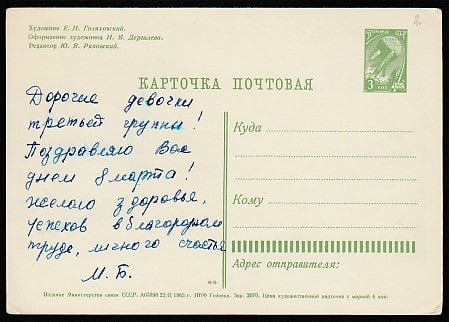 Художник Е. Н. Голяховский.
Оформление художника Н. Я. Дергилева.
Редактор Ю. В. Ряховский.
КАРТОЧКА ПОЧТОВАЯ
СССР
3
КОП
Дорогие девочки
третьей группы!
Поздравляю Вас
днем 8 марта!
Желаю здоровья,
успехов в благородном
труде, личного счастья
М. Б.
Куда
Кому
Адрес отправителя:
Издание Министерства связи СССР. 22/II 1965 г. ППФ Гознака. Зак. 2070. Цена художественной карточки с маркой 4 коп.